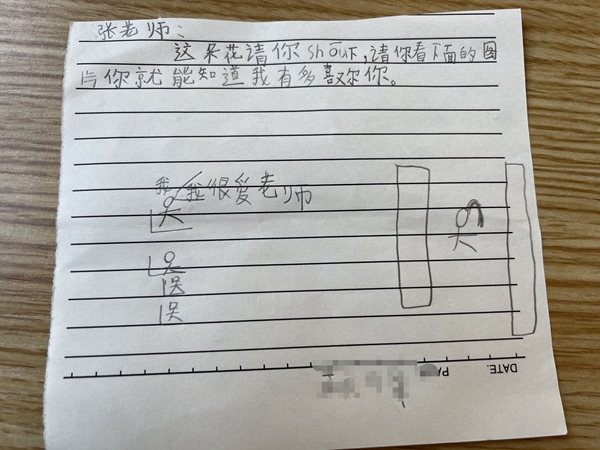 张老师：
这朵花请你shōuf,请你看下面的图
片你就能知道我有多喜欢你。
我 我很爱老师
误
误
DATE.